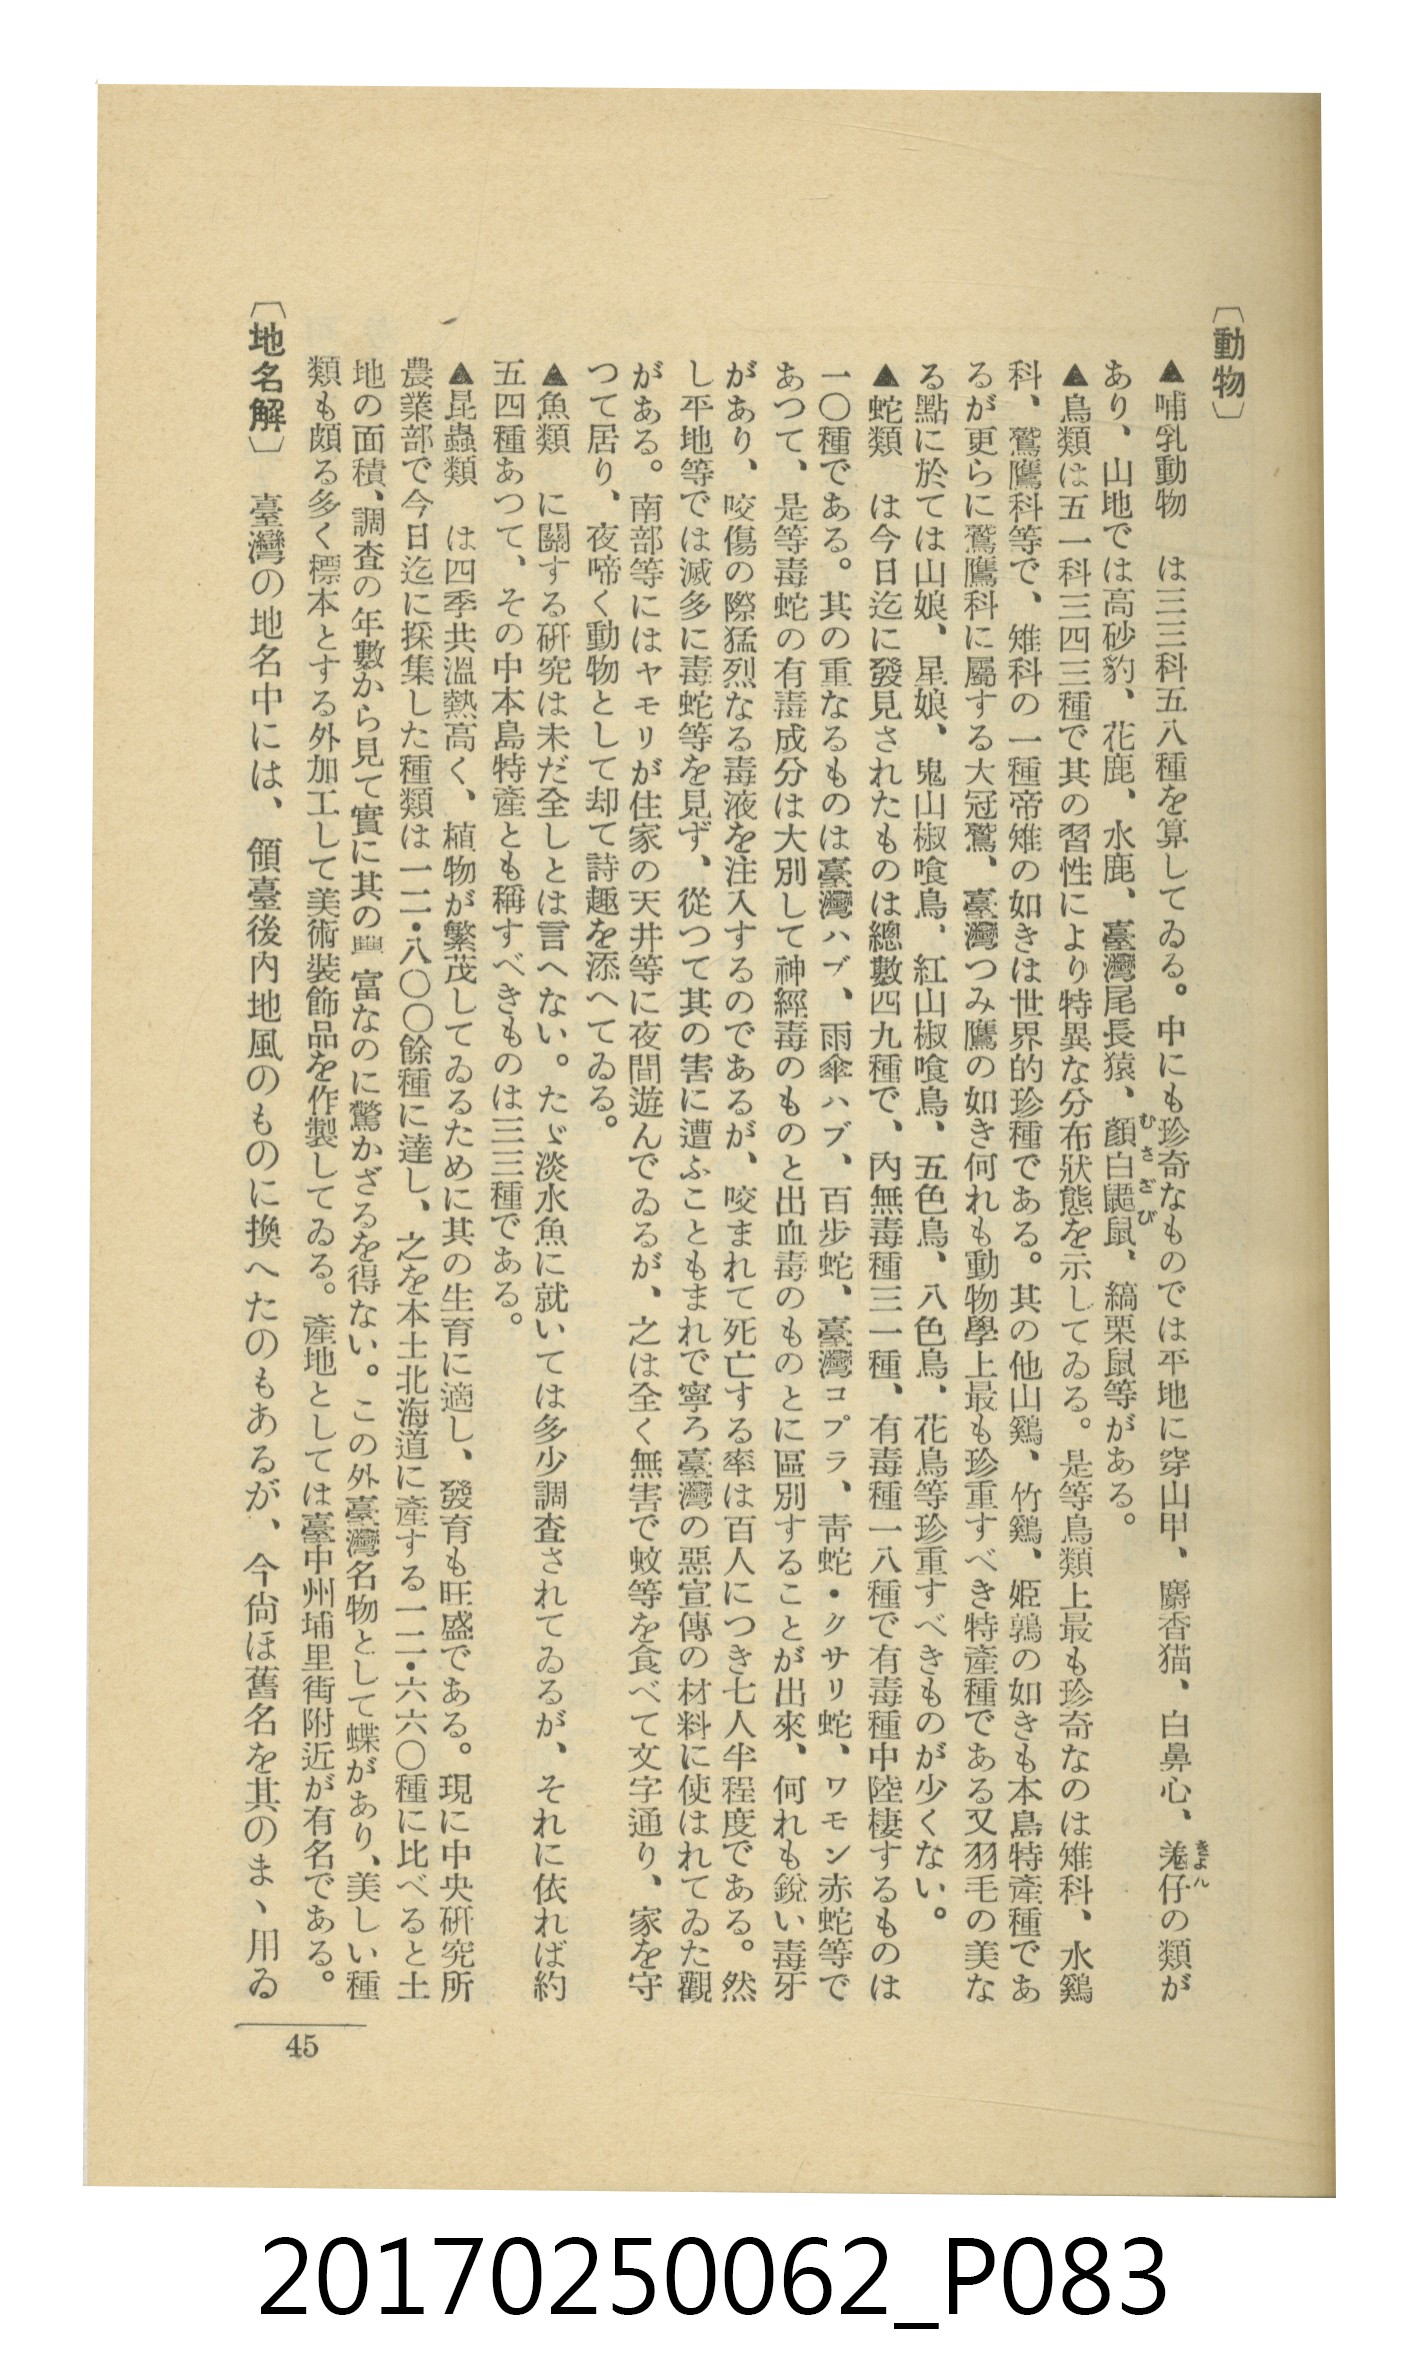 〔動物〕
▲哺乳動物　は三三科五八種を算してゐる。中にも珍奇なものでは平地に穿山甲、麝香猫、白鼻心、羗仔の類が
きよん
あり、山地では高砂豹、花鹿、水鹿、臺灣尾長猿、顏白鼯鼠、縞栗鼠等がある。
むささび
▲鳥類は五一科三四三種で其の習性により特異な分布狀態を示してゐる。是等鳥類上最も珍奇なのは雉科、水鷄
科、鷲鷹科等で、雉科の一種帝雉の如きは世界的珍種である。其の他山鷄、竹鷄、姫鶉の如きも本島特產種であ
るが更らに鷲鷹科に屬する大冠鷲、臺灣つみ鷹の如き何れも動物學上最も珍重すべき特產種である又羽毛の美な
る點に於ては山娘、星娘、鬼山椒喰鳥、紅山椒喰鳥、五色鳥、八色鳥、花鳥等珍重すべきものが少くない。
▲蛇類　は今日迄に發見されたものは總數四九種で、內無毒種三一種、有毒種一八種で有毒種中陸棲するものは
一〇種である。其の重なるものは臺灣ハブ、雨傘ハブ、百步蛇、臺灣コブラ、靑蛇・クサリ蛇、ワモン赤蛇等で
あつて、是等毒蛇の有毒成分は大別して神經毒のものと出血毒のものとに區別することが出來、何れも銳い毒牙
があり、咬傷の際猛烈なる毒液を注入するのであるが、咬まれて死亡する率は百人につき七人半程度である。然
し平地等では滅多に毒蛇等を見ず、從つて其の害に遭ふこともまれで寧ろ臺灣の惡宣傳の材料に使はれてゐた觀
がある。南部等にはヤモリが住家の天井等に夜間遊んでゐるが、之は全く無害で蚊等を食べて文字通り、家を守
つて居り、夜啼く動物として却て詩趣を添へてゐる。
▲魚類　に關する硏究は未だ全しとは言へない。たゞ淡水魚に就いては多少調査されてゐるが、それに依れば約
五四種あつて、その中本島特產とも稱すべきものは三三種である。
▲昆蟲類　は四季共溫熱高く、植物が繁茂してゐるために其の生育に適し、發育も旺盛である。現に中央硏究所
農業部で今日迄に採集した種類は一二・八〇〇餘種に達し、之を本土北海道に產する一二・六六〇種に比べると土
地の面積、調査の年數から見て實に其の豐富なのに驚かざるを得ない。この外臺灣名物として蝶があり、美しい種
類も頗る多く標本とする外加工して美術裝飾品を作製してゐる。產地としては臺中州埔里街附近が有名である。
〔地名解〕　臺灣の地名中には、領臺後內地風のものに換へたのもあるが、今尙ほ舊名を其のまゝ用ゐ
45
20170250062_P083